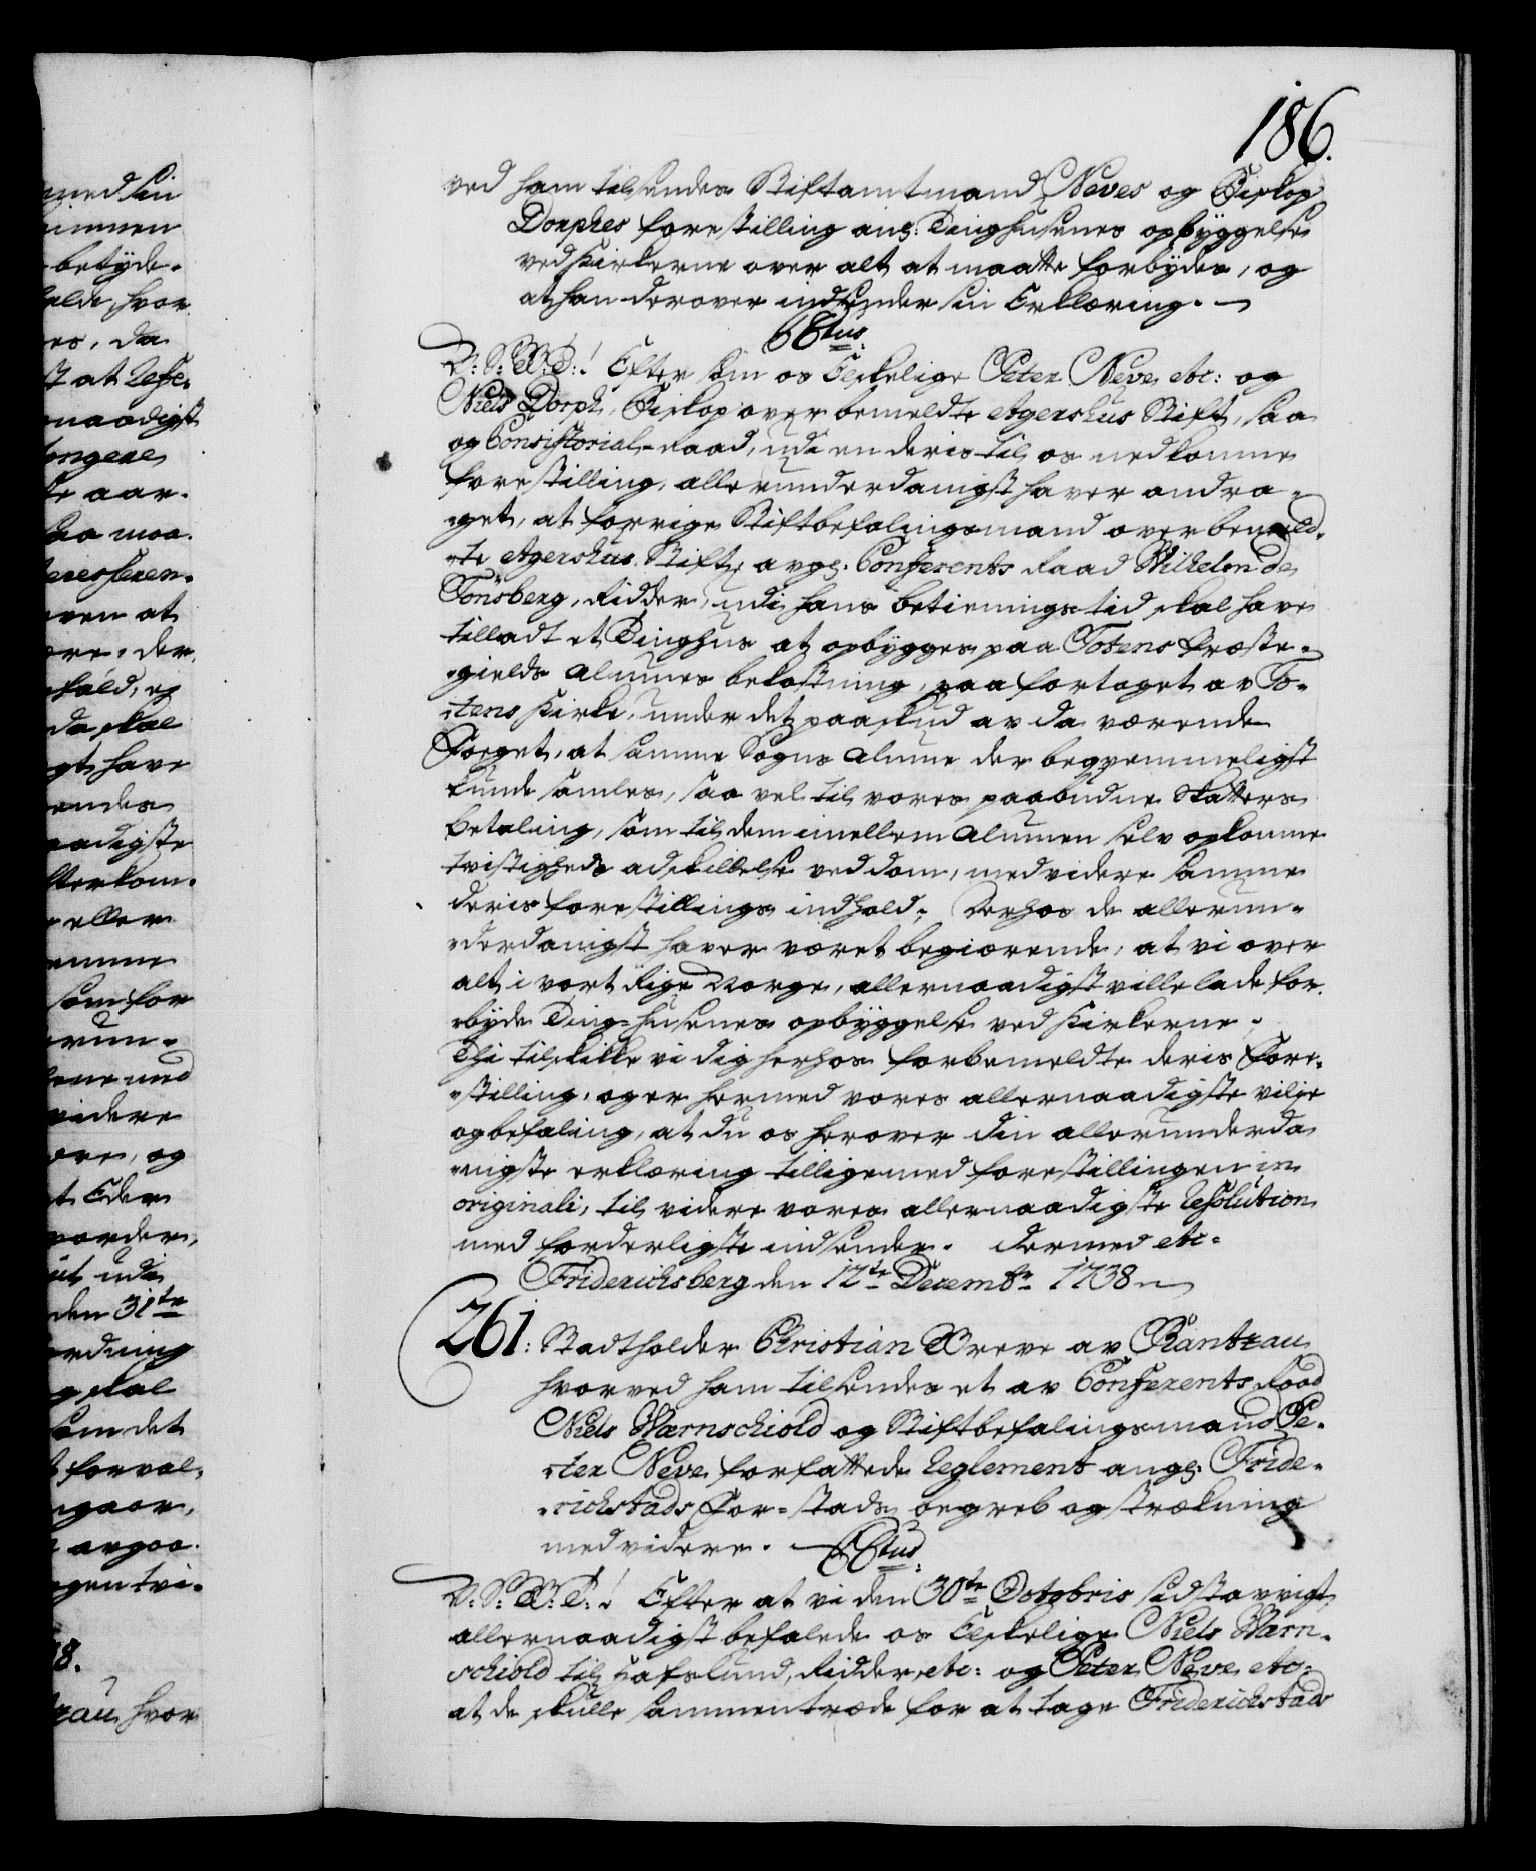 186.
ved ham tilsendes Stiftamtmand Neves og Biskop
Dorphes forestilling ang: Tinghusenes opbÿggelse
ved Kirkerne over alt at maatte forbÿdes, og
at han derover indsender sin Erklæring. —
CCtus.
V: S: B: T:! Efter som os Elskelige Peter Neve etc: og
Niels Dorph, Biskop over bemeldte Agershus Stift, saa
og Consistorial-Raad, udi en deris til os nedkomne
forestilling, allerunderdanigst haver andra-
-get, at forrige Stiftbefalingsmand over bemeld-
-te Agershus Stift, avg: Conferents Raad Wilhelm de
Tönsberg, Ridder, udi hans betienings tid skal have
tilladt et Tinghus at opbÿgges paa Totens Præste-
-gields Almues bekostning, paa fortoget av To-
-tens Kirke, under det paaskud av da værende
Foeget, at samme Sogns Almue der beqvemmeligst
kunde samles, saa vel til vores paabudne Skatters
betaling, som til dem imellem Almuen selv opkomne
tvistigheds adskillelse ved dom, med videre samme
deris forestillings indhold; Derhos de allerun-
-derdanigst haver været begiærende, at vi over
alt i vort Rige Norge, allernaadigst ville lade for-
-bÿde Ting-husenes opbÿggelse ved Kirkerne;
Thi tilskikke vi dig herhos forbemeldte deris Fore-
-stilling, og er hermed vores allernaadigste vilje
og befaling, at du os herover din allerunderda
-nigste erklæring tilligemed forestillingen in
originali, til videre vores allernaadigste Resolution
med forderligste indsender. Dermed etc:
Friderichsberg den 12te Decembr 1738
261: Stadtholder Christian Greve av Rantzau
hvorved ham tilsendes et av Conferents Raad
Niels Wærnschiold og Stiftbefalingsmand Pe-
-ter Neve forfattede Reglement angl: Fride-
-richstads For-stads begreb og strækning
med videre. — CCtus.
V: S: B: T:! Efter at vi den 30te Octobris sidst avvigt
allernaadigst befalede os Elskelige Niels Wærn-
schiold til Hafslund, Ridder, etc: og Peter Neve etc:
at de skulle sammentræde for at tage Friderichstads